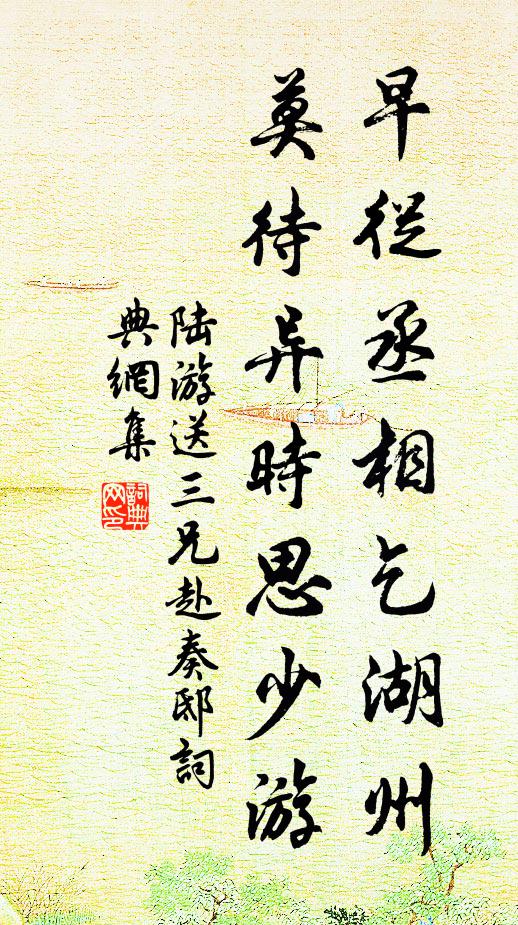 早從丞相乞湖州
莫待异時思少游
陆游送三兄赴奏邸詞
典網集
詞典
网印